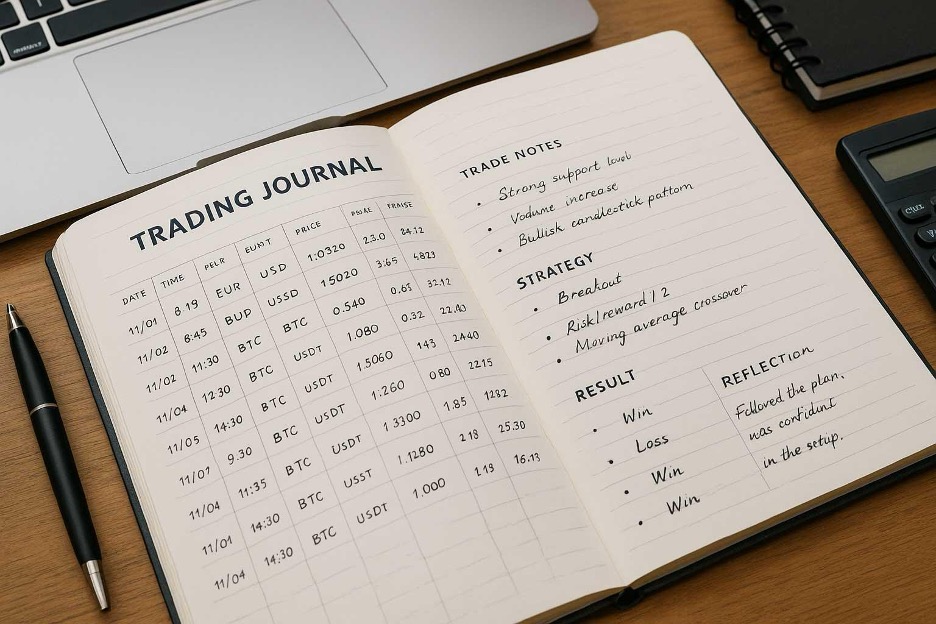 TRADING JOURNAL
DATE TIME PELR EUMT PRICE PMAE FRAISE
11/01 8.19 EUR USD 1:0320 23.0 84.12
11/02 8:45 BUP USSD 15020 3:65 4823
11/02 11:30 BTC BTC 0.540 0.65 32.12
11/04 12:30 BTC USDT 1.080 0.32
11/05 14:30 BTC USDT 1.5060 143 2440
11/07 9.30 BTC USDT 1:260 080 2215
11/04 11:35 BTC USDT 1 3300 1.85 1282
11/01 14:30 BTC USST 1.1280 2 18 25.30
11/04 14:30 BTC USDT 1.000 1.19 16.13
TRADE NOTES
• Strong support level
• Vodume increase
• Bullisk candlestick pattom
STRATEGY
• Breakout
• Risk/reward 1 2
• Moving average crossover
RESULT
• Win
• Loss
• Win
• Win
REFLECTION
Followed the plan.
was confidint
in the setup.